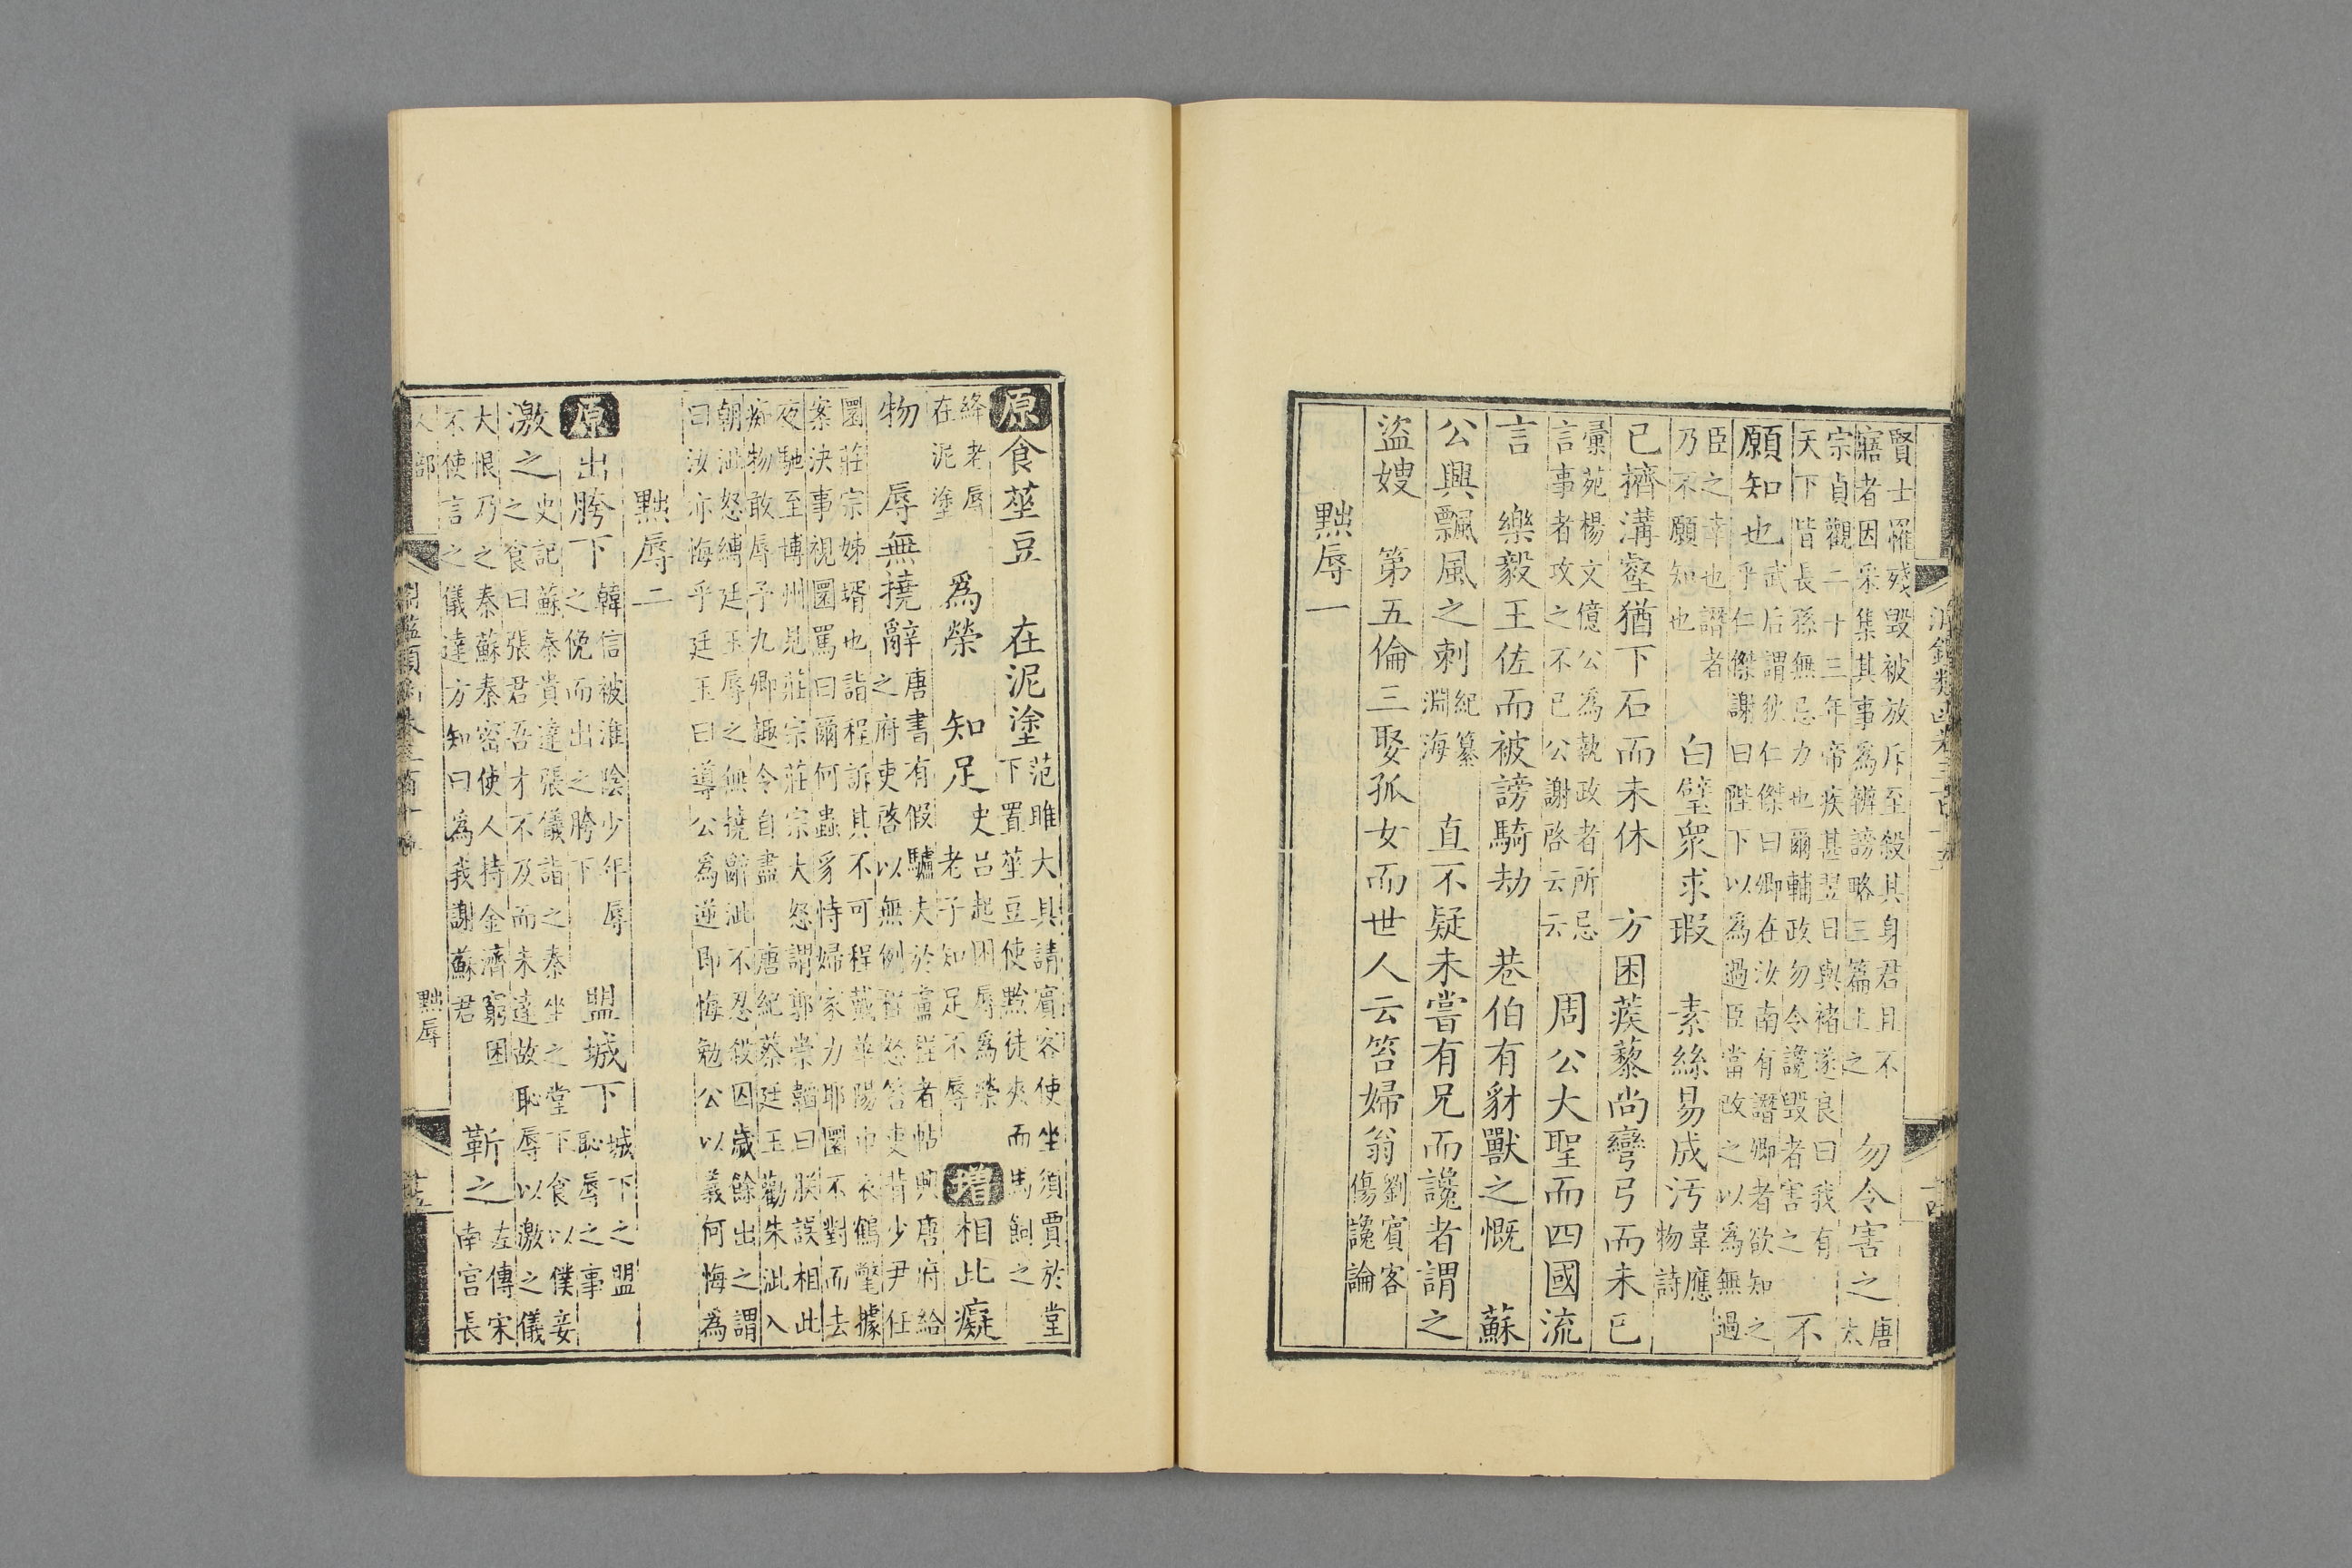 賢士罹殘毀被放斥至殺其身君且不
寤者因采集其事爲辨謗略三篇上之
勿令害之
唐太
宗貞觀二十三年帝疾甚翌日與褚遂良曰我有
天下皆長孫無忌力也爾輔政勿令讒毀者害之
不
願知也
武后謂狄仁傑曰卿在汝南有譖卿者欲知之
乎仁傑謝曰陛下以爲過臣當改之以爲無過
臣之幸也譖者
乃不願知也
白璧衆求瑕
素絲易成汚
韋應
物詩
已擠溝壑猶下石而未休
方困蒺藜尚彎弓而未已
彙苑楊文億公爲執政者所忌
言事者攻之不已公謝啓云云
周公大聖而四國流
言
樂毅王佐而被謗騎劫
巷伯有豺獸之慨
蘇
公興飄風之刺
紀纂
淵海
直不疑未嘗有兄而讒者謂之
盜嫂
第五倫三娶孤女而世人云笞婦翁
劉賓客
傷讒論
黜辱一
原食莝豆
在泥塗
范雎大具請賓客使坐須賈於堂
下置莝豆使黥徒夾而馬飼之
絳老辱
在泥塗
爲榮
知足
史呂起困辱爲榮
老子知足不辱
增相此癡
物
辱無撓辭
唐書有假驢夫於盧程者帖興唐府給
之府吏啓以無例程怒笞吏背少尹任
圜莊宗姊壻也詣程訴其不可程戴華陽巾衣鶴氅據
案決事視圜罵曰爾何蟲豸恃婦家力耶圜不對而去
夜馳至博州見莊宗莊宗大怒謂郭崇韜曰朕誤相此
癡物敢辱予九卿趣令自盡
唐紀蔡廷玉勸朱泚入
朝泚怒縛廷玉辱之無撓辭泚不忍殺囚歲餘出之謂
曰汝亦悔乎廷玉曰導公爲逆即悔勉公以義何悔爲
黜辱二
原出胯下
韓信被淮陰少年辱
之俛而出之胯下
盟城下
城下之盟
恥辱之事
激之
史記蘇秦貴達張儀詣之秦坐之堂下食以僕妾
之食曰張君吾才不及而未達故恥辱以激之儀
大恨乃之秦蘇秦密使人持金濟窮困
不使言之儀達方知曰爲我謝蘇君
靳之
左傳宋
南宫長
人部
淵鑑類函卷三百十
黜辱